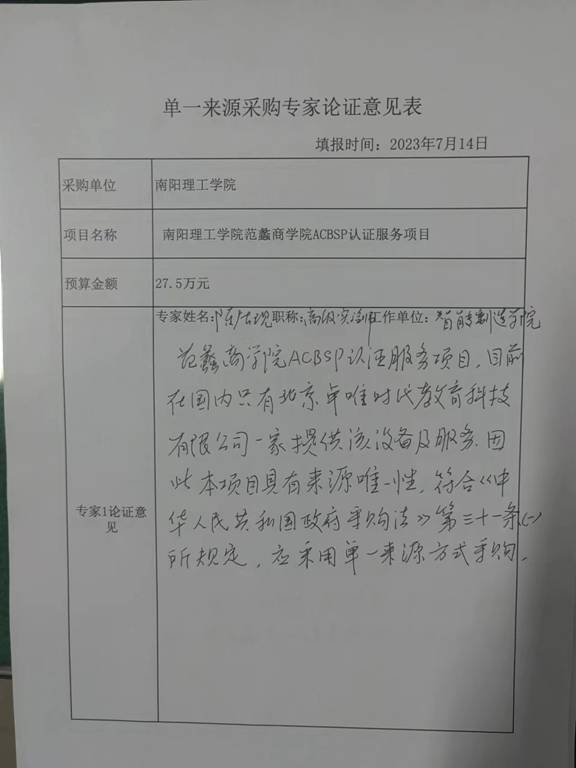 单一来源采购专家论证意见表
填报时间：2023年7月14日
采购单位
南阳理工学院
项目名称
南阳理工学院范蠡商学院ACBSP认证服务项目
预算金额
27.5万元
专家姓名: 职称:高级实验师 工作单位:智能制造学院
范蠡商学院ACBSP认证服务项目，目前
在国内只有北京卓唯时代教育科技
有限公司一家提供该设备及服务.因
此本项目具有来源唯一性，符合《中
华人民共和国政府采购法》第三十一条(一)
所规定，应采用单一来源方式采购。
专家1论证意
见